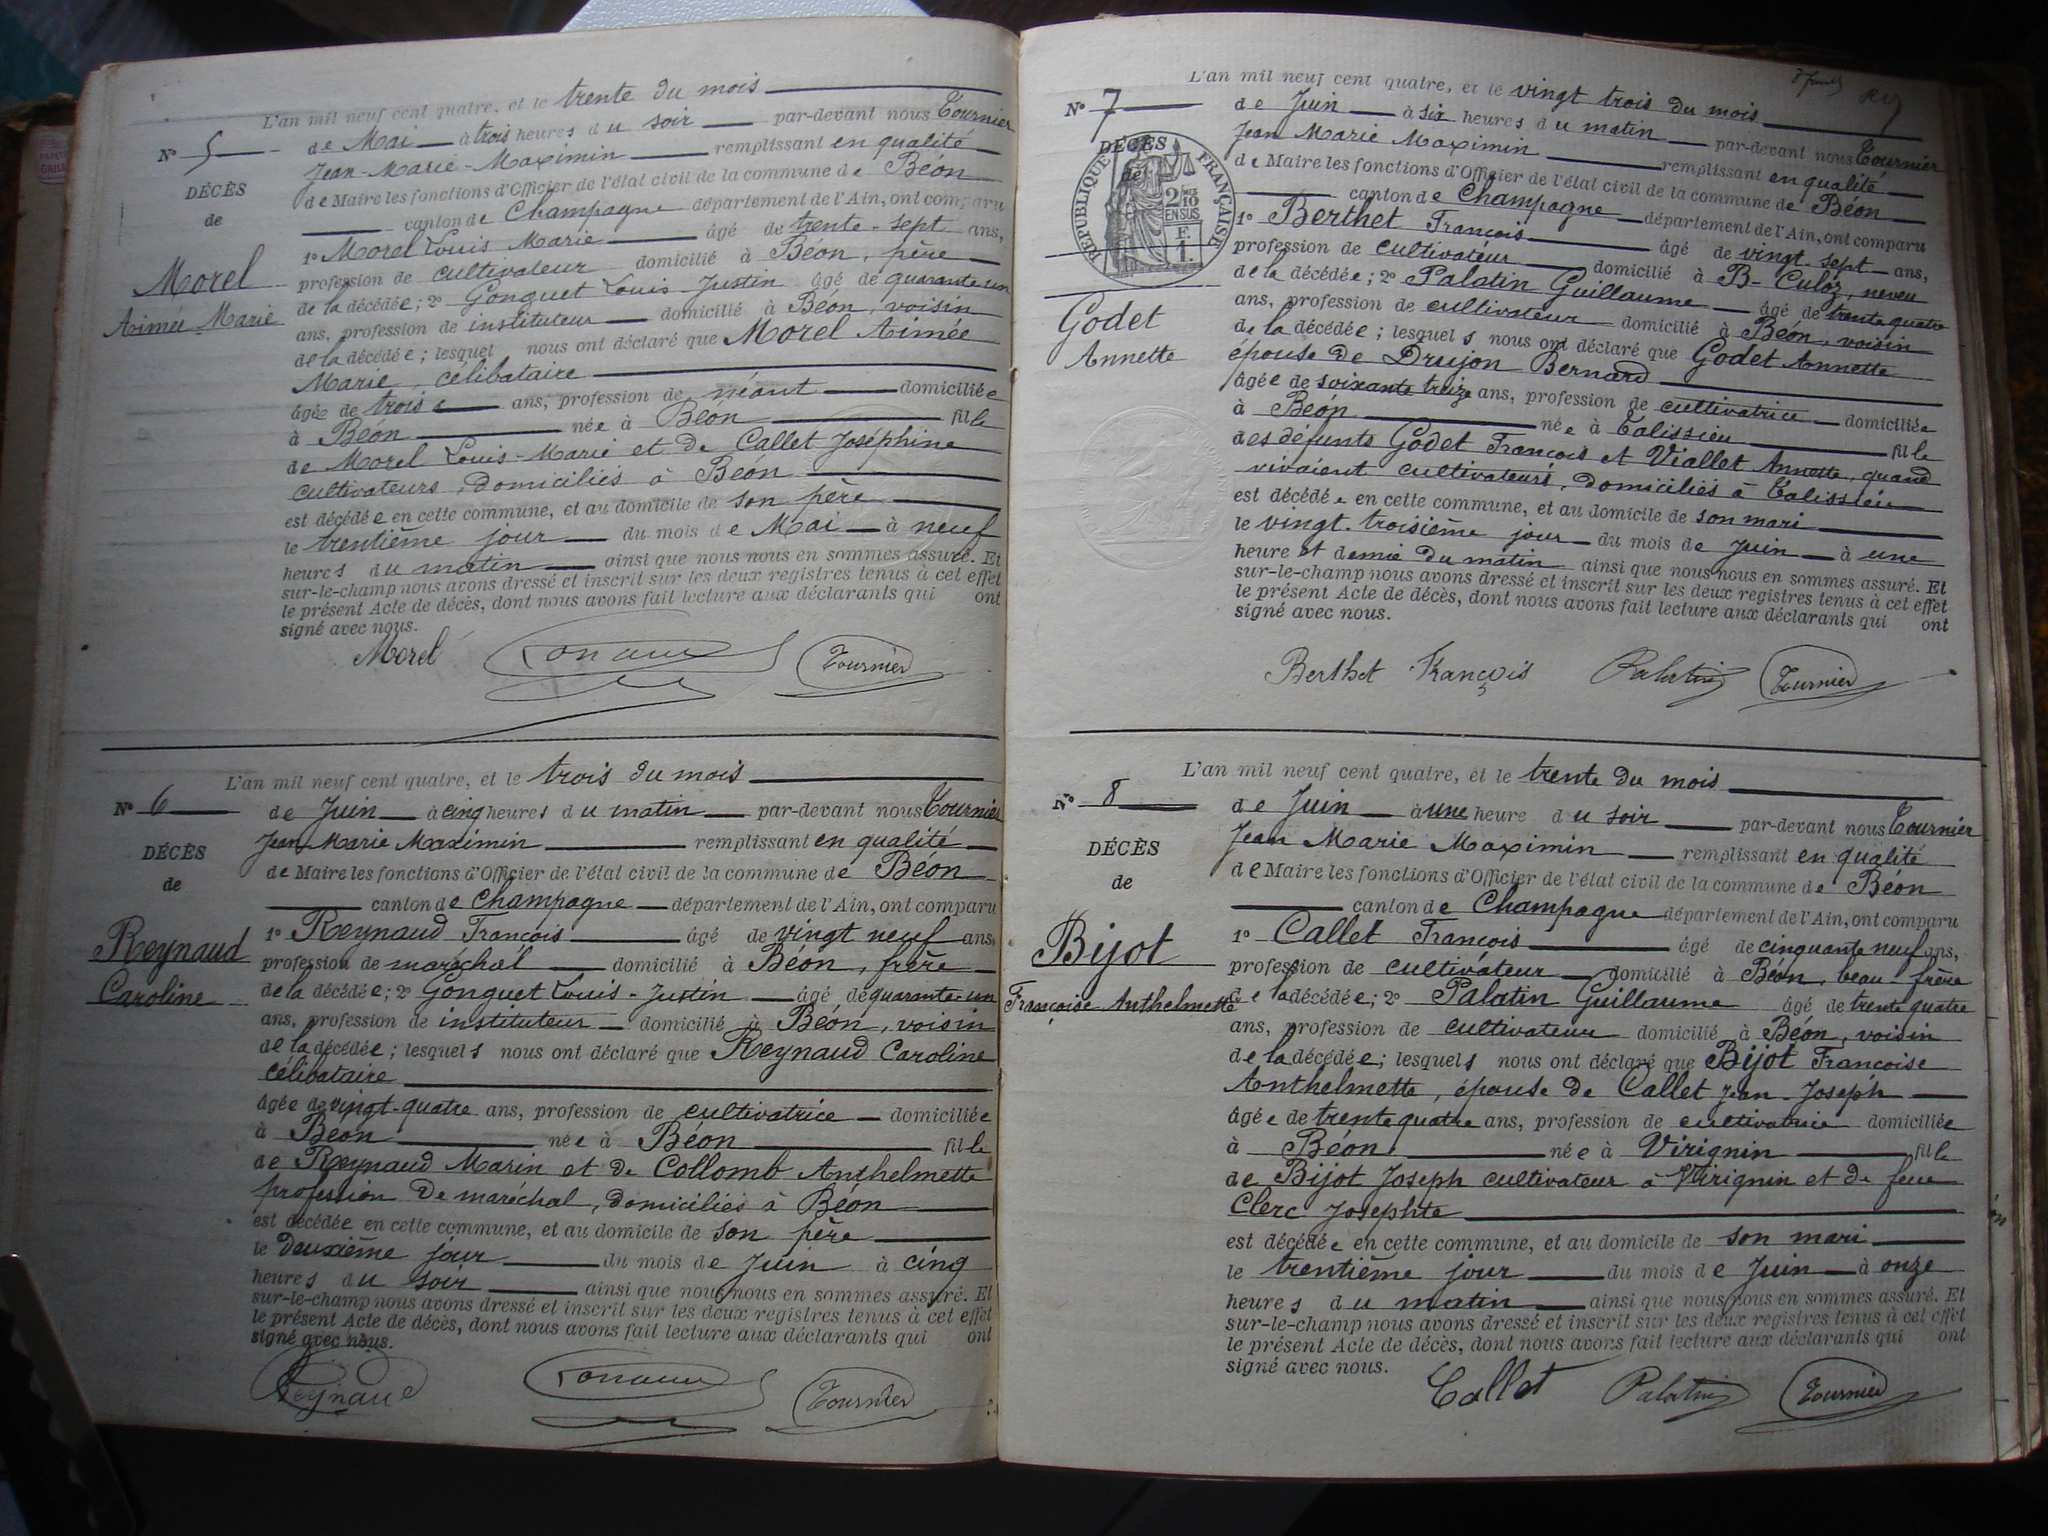 L'an mil neuf cent quatre, et le trente du mois
N° 5
de Mai à trois heures du soir par-devant nous Tournier
Jean-Marie-Maximin remplissant en qualité
DÉCÈS
de Maire les fonctions d'Officier de l'état civil de la commune de Béon
de
canton de Champagne département de l'Ain, ont comparu
1° Morel Louis Marie âgé de trente-sept ans,
Morel
profession de cultivateur domicilié à Béon, père
Aimée Marie
de la décédée; 2° Gonguet Louis-Justin âgé de quarante un
ans, profession de instituteur domicilié à Béon, voisin
de la décédée; lesquel nous ont déclaré que Morel Aimée
Marie, célibataire
âgée de trois ans, profession de néant domiciliée
à Béon née à Béon fille
de Morel Louis-Marie et de Callet Joséphine
cultivateurs, domiciliés à Béon
est décédée en cette commune, et au domicile de son père
le trentième jour du mois de Mai à neuf
heures du matin ainsi que nous nous en sommes assuré. Et
sur-le-champ nous avons dressé et inscrit sur les deux registres tenus à cet effet
le présent Acte de décès, dont nous avons fait lecture aux déclarants qui ont
signé avec nous.
Morel Tournier
L'an mil neuf cent quatre, et le trois du mois
N° 6
de Juin à cinq heures du matin par-devant nous Tournier
Jean Marie Maximin remplissant en qualité
DÉCÈS
de Maire les fonctions d'Officier de l'état civil de la commune de Béon
de
canton de Champagne département de l'Ain, ont comparu
Reynaud
1° Reynaud François âgé de vingt neuf ans,
profession de maréchal domicilié à Béon, frère
Caroline
de la décédée; 2° Gonguet Louis-Justin âgé de quarante-un
ans, profession de instituteur domicilié à Béon, voisin
de la décédée; lesquels nous ont déclaré que Reynaud Caroline
célibataire
âgée de vingt-quatre ans, profession de cultivatrice domiciliée
à Béon née à Béon fille
de Reynaud Marin et de Collomb Anthelmette
profession de maréchal, domiciliés à Béon
est décédée en cette commune, et au domicile de son père
le deuxième jour du mois de Juin à cinq
heures du soir ainsi que nous nous en sommes assuré. Et
sur-le-champ nous avons dressé et inscrit sur les deux registres tenus à cet effet
le présent Acte de décès, dont nous avons fait lecture aux déclarants qui ont
signé avec nous.
Reynaud Tournier
L'an mil neuf cent quatre, et le vingt trois du mois
N° 7
de Juin à six heures du matin par-devant nous Tournier
Jean Marie Maximin remplissant en qualité
DÉCÈS
de
RÉPUBLIQUE FRANÇAISE
2 10 EN SUS
F. 1.
de Maire les fonctions d'Officier de l'état civil de la commune de Béon
canton de Champagne département de l'Ain, ont comparu
1° Berthet François âgé de vingt-sept ans,
profession de cultivateur domicilié à B-Culoz, neveu
Godet
Annette
de la décédée; 2° Palatin Guillaume âgé de trente quatre
ans, profession de cultivateur domicilié à Béon, voisin
de la décédée; lesquels nous ont déclaré que Godet Annette
épouse de Drujon Bernard
âgée de soixante treize ans, profession de cultivatrice domiciliée
à Béon née à Talissieu fille
des défunts Godet François et Viallet Annette, quand
vivaient cultivateurs, domiciliés à Talissieu
est décédée en cette commune, et au domicile de son mari
le vingt-troisième jour du mois de Juin à une
heure et demie du matin ainsi que nous nous en sommes assuré. Et
sur-le-champ nous avons dressé et inscrit sur les deux registres tenus à cet effet
le présent Acte de décès, dont nous avons fait lecture aux déclarants qui ont
signé avec nous.
Berthet François Palatin Tournier
L'an mil neuf cent quatre, et le trente du mois
N° 8
de Juin à une heure du soir par-devant nous Tournier
Jean Marie Maximin remplissant en qualité
DÉCÈS
de Maire les fonctions d'Officier de l'état civil de la commune de Béon
de
canton de Champagne département de l'Ain, ont comparu
Bijot
1° Callet François âgé de cinquante neuf ans,
profession de cultivateur domicilié à Béon, beau-frère
Françoise Anthelmette
de la décédée; 2° Palatin Guillaume âgé de trente quatre
ans, profession de cultivateur domicilié à Béon, voisin
de la décédée; lesquels nous ont déclaré que Bijot Françoise
Anthelmette, épouse de Callet Jean-Joseph
âgée de trente quatre ans, profession de cultivatrice domiciliée
à Béon née à Virignin fille
de Bijot Joseph cultivateur à Virignin et de feue
Clerc Josephte
est décédée en cette commune, et au domicile de son mari
le trentième jour du mois de Juin à onze
heures du matin ainsi que nous nous en sommes assuré. Et
sur-le-champ nous avons dressé et inscrit sur les deux registres tenus à cet effet
le présent Acte de décès, dont nous avons fait lecture aux déclarants qui ont
signé avec nous.
Callet Palatin Tournier